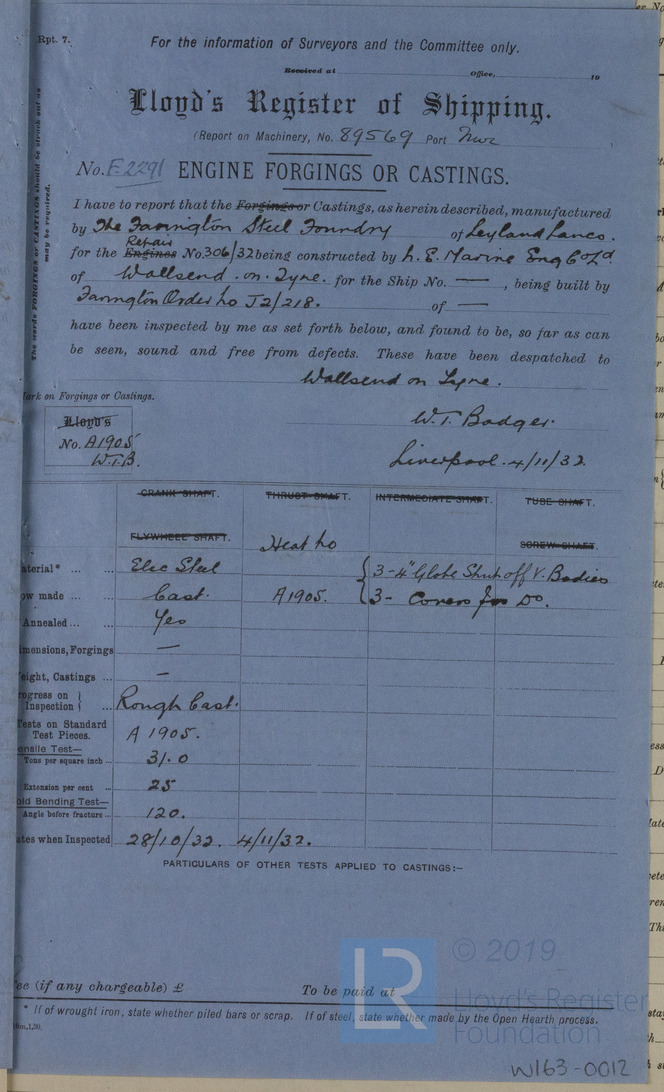 Rpt. 7.
For the information of Surveyors and the Committee only.
Received at Office, 19
Lloyd's Register of Shipping.
(Report on Machinery, No. 89569 Port Nwc
No. F.2291 ENGINE FORGINGS OR CASTINGS.
The words FORGINGS or CASTINGS should be struck out as
may be required.
I have to report that the Forgings or Castings, as herein described, manufactured
by The Farington Steel Foundry of Leyland Lancs.
Repair
for the Engines No. 306/32 being constructed by N. E. Marine Eng Co Ld
of Wallsend. on. Tyne. for the Ship No. — , being built by
Farington Order No J2/218. of —
have been inspected by me as set forth below, and found to be, so far as can
be seen, sound and free from defects. These have been despatched to
Wallsend on Tyne.
ark on Forgings or Castings.
Lloyd's
No. A1905
W.T.B.
W.T. Badger.
Liverpool. 4/11/32.
CRANK SHAFT. THRUST SHAFT. INTERMEDIATE SHAFT. TUBE SHAFT.
FLYWHEEL SHAFT. Heat No SCREW SHAFT.
aterial* ... ... Elec Steel { 3-4" Globe Shut off V. Bodies
ow made ... ... Cast. A1905. { 3- Covers for Do.
Annealed ... ... Yes
imensions, Forgings —
eight, Castings ... —
rogress on }
Inspection } ... Rough Cast.
Tests on Standard
Test Pieces. A 1905.
ensile Test—
Tons per square inch ... 31.0
Extension per cent ... 25
old Bending Test—
Angle before fracture ... 120.
ates when Inspected 28/10/32. 4/11/32.
PARTICULARS OF OTHER TESTS APPLIED TO CASTINGS:—
ee (if any chargeable) £ To be paid at
* If of wrought iron, state whether piled bars or scrap. If of steel, state whether made by the Open Hearth process.
LR
© 2019
Lloyd's Register
Foundation
W163-0012